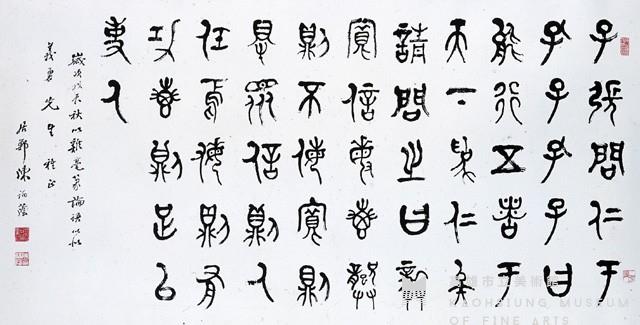 子張問仁于
孔子孔子曰
能行五者于
天下為仁矣
請問之曰恭
寬信敏惠恭
則不侮寬則
得眾信則人
任焉敏則有
功惠則足以
使人
歲次戊辰秋以雞毫篆論語以似
義勇先生雅正
陳
高雄市立美術館
KAOHSIUNG MUSEUM
OF FINE ARTS